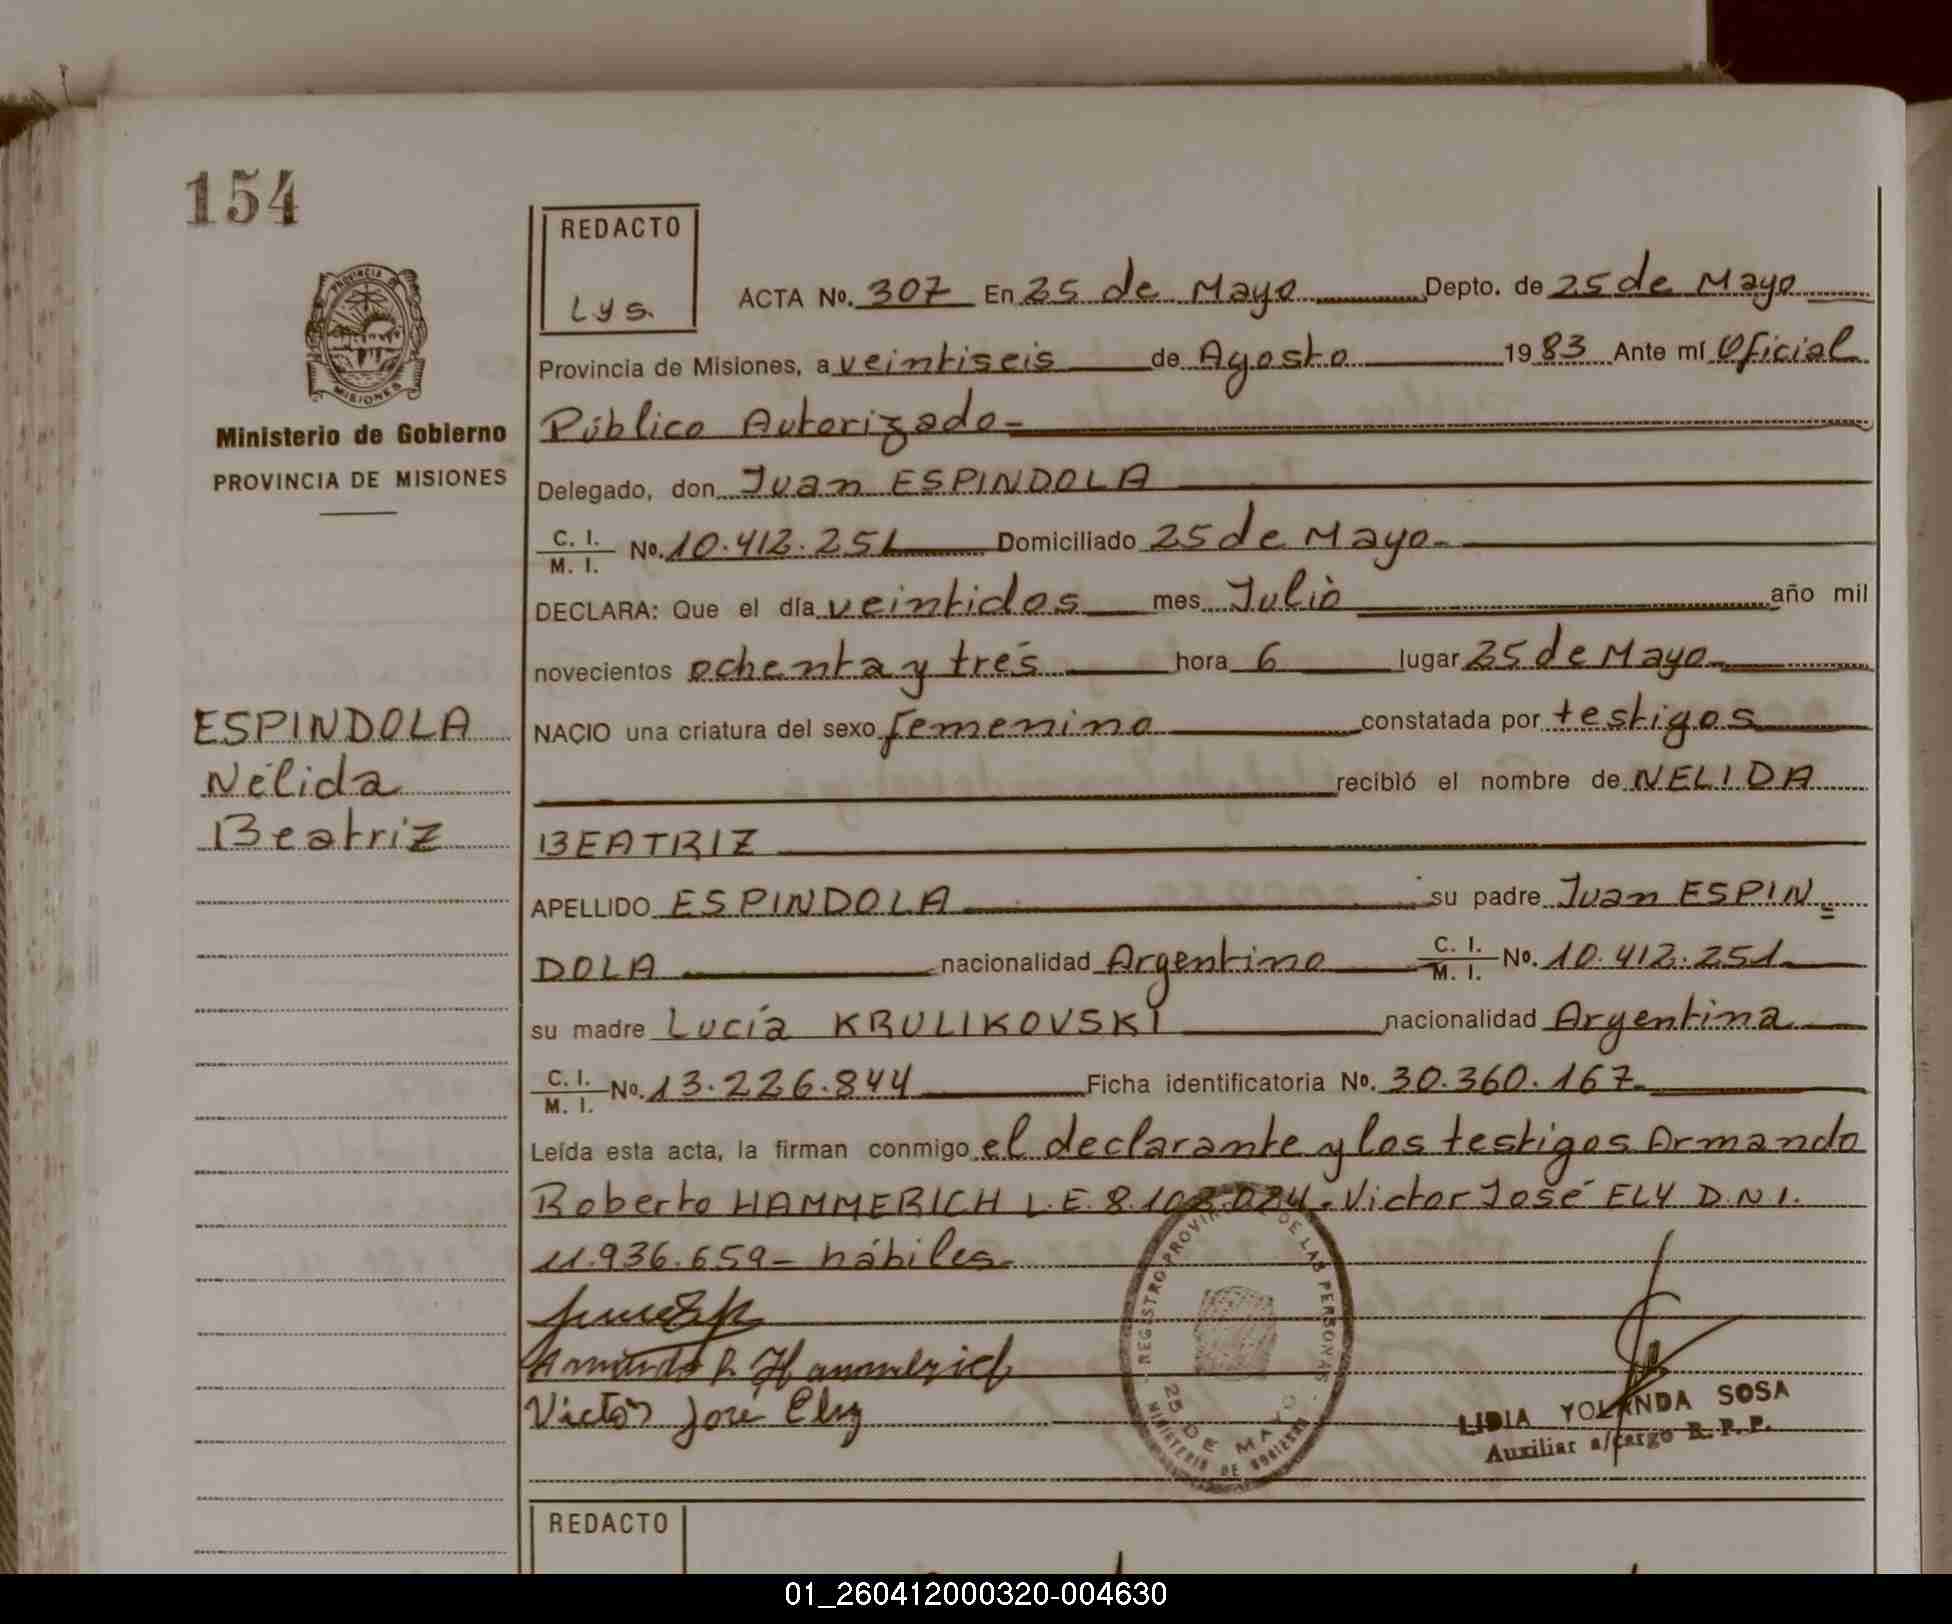 154
REDACTO
Lys.
PROVINCIA DE
MISIONES
Ministerio de Gobierno
PROVINCIA DE MISIONES
ACTA No. 307 En 25 de Mayo Depto. de 25 de Mayo
Provincia de Misiones, a veintiseis de Agosto 1983 Ante mí Oficial
Público Autorizado-
Delegado, don Juan ESPINDOLA
C. I. / M. I. No. 10.412.251 Domiciliado 25 de Mayo-
DECLARA: Que el día veintidos mes Julio año mil
novecientos ochenta y tres hora 6 lugar 25 de Mayo-
NACIO una criatura del sexo femenino constatada por testigos
recibió el nombre de NELIDA
BEATRIZ
APELLIDO ESPINDOLA su padre Juan ESPIN=
DOLA nacionalidad Argentino C. I. / M. I. No. 10.412.251-
su madre Lucía KRULIKOVSKI nacionalidad Argentina
C. I. / M. I. No. 13.226.844 Ficha identificatoria No. 30.360.167-
Leída esta acta, la firman conmigo el declarante y los testigos Armando
Roberto HAMMERICH L.E. 8.102.024. Victor José ELY D.N.I.
11.936.659- hábiles-
ESPINDOLA
Nélida
Beatriz
Armando R. Hammerich
Victor José Ely
REGISTRO PROVINCIAL DE LAS PERSONAS
25 DE MAYO
MINISTERIO DE GOBIERNO
LIDIA YOLANDA SOSA
Auxiliar a/cargo R. P. P.
REDACTO
01_260412000320-004630